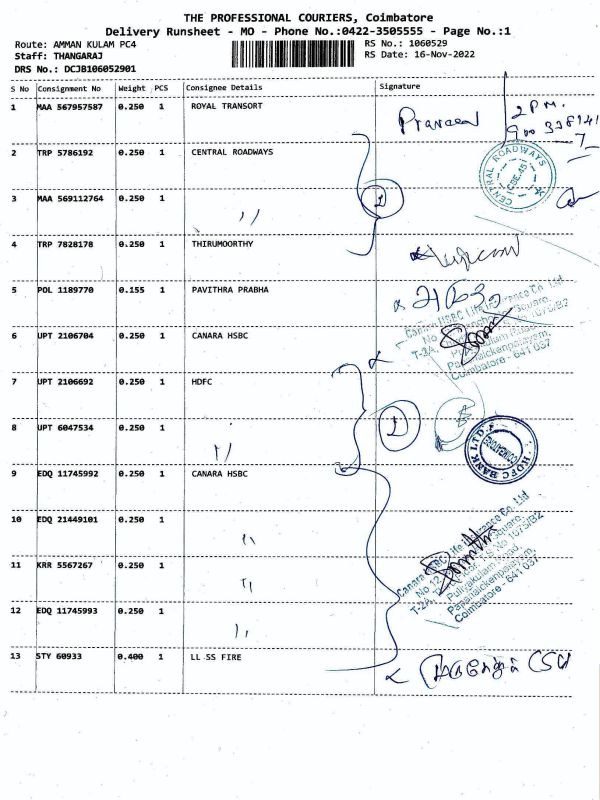 THE PROFESSIONAL COURIERS, Coimbatore
Delivery Runsheet - MO - Phone No.:0422-3505555 - Page No.:1
Route: AMMAN KULAM PC4
Staff: THANGARAJ
DRS No.: DCJB106052901
RS No.: 1060529
RS Date: 16-Nov-2022
S No Consignment No Weight PCS Consignee Details Signature
1 MAA 567957587 0.250 1 ROYAL TRANSORT
Praveen
2 PM.
2 TRP 5786192 0.250 1 CENTRAL ROADWAYS
CENTRAL ROADWAYS
CBE.45
3 MAA 569112764 0.250 1 〃
2
4 TRP 7828178 0.250 1 THIRUMOORTHY
5 POL 1189770 0.155 1 PAVITHRA PRABHA
6 UPT 2106704 0.250 1 CANARA HSBC
Canara HSBC Life Insurance Co. Ltd
Papanaickenpalayam,
Coimbatore - 641 037
7 UPT 2106692 0.250 1 HDFC
8 UPT 6047534 0.250 1 〃
2
HDFC BANK LTD.
COIMBATORE
9 EDQ 11745992 0.250 1 CANARA HSBC
10 EDQ 21449101 0.250 1 〃
11 KRR 5567267 0.250 1 〃
12 EDQ 11745993 0.250 1 〃
Canara HSBC Life Insurance Co. Ltd
Pulirakulam Road
Papanaickenpalayam,
Coimbatore - 641 037
13 STY 60933 0.400 1 LL SS FIRE